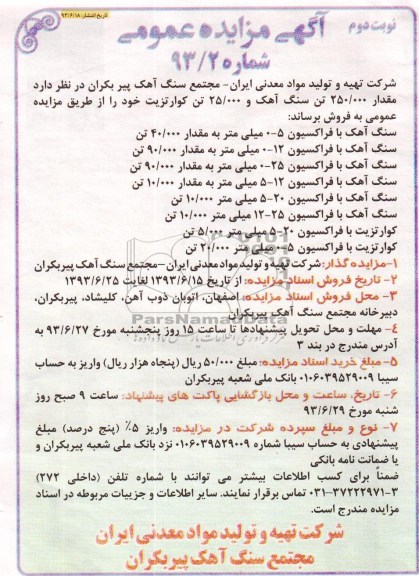 نوبت دوم
تاریخ انتشار: ۹۳/۶/۱۸
آگهی مزایده عمومی
شماره ۹۳/۲
شرکت تهیه و تولید مواد معدنی ایران- مجتمع سنگ آهک پیر بکران در نظر دارد
مقدار ۲۵۰/۰۰۰ تن سنگ آهک و ۲۵/۰۰۰ تن کوارتزیت خود را از طریق مزایده
عمومی به فروش برساند:
سنگ آهک با فراکسیون ۵-۰ میلی متر به مقدار ۴۰/۰۰۰ تن
سنگ آهک با فراکسیون ۱۲-۰ میلی متر به مقدار ۹۰/۰۰۰ تن
سنگ آهک با فراکسیون ۲۵-۰ میلی متر به مقدار ۹۰/۰۰۰ تن
سنگ آهک با فراکسیون ۱۲-۵ میلی متر به مقدار ۱۰/۰۰۰ تن
سنگ آهک با فراکسیون ۲۰-۵ میلی متر ۱۰/۰۰۰ تن
سنگ آهک با فراکسیون ۲۵-۱۲ میلی متر ۱۰/۰۰۰ تن
کوارتزیت با فراکسیون ۲۰-۵ میلی متر ۵/۰۰۰ تن
کوارتزیت با فراکسیون ۵-۰ میلی متر ۲۰/۰۰۰ تن
۱-مزایده گذار: شرکت تهیه و تولید مواد معدنی ایران-مجتمع سنگ آهک پیربکران
۲- تاریخ فروش اسناد مزایده: از تاریخ ۱۳۹۳/۶/۱۵ لغایت ۱۳۹۳/۶/۲۵
۳- محل فروش اسناد مزایده: اصفهان، اتوبان ذوب آهن، کلیشاد، پیربکران،
دبیرخانه مجتمع سنگ آهک پیربکران
ParsNamadData
۴- مهلت و محل تحویل پیشنهادها تا ساعت ۱۵ روز پنجشنبه مورخ ۹۳/۶/۲۷ به
آدرس مندرج در بند ۳
۵- مبلغ خرید اسناد مزایده: مبلغ ۵۰/۰۰۰ ریال (پنجاه هزار ریال) واریز به حساب
سیبا ۰۱۰۶۰۳۹۵۲۹۰۰۹ بانک ملی شعبه پیربکران
۶- تاریخ، ساعت و محل بازگشایی پاکت های پیشنهاد: ساعت ۹ صبح روز
شنبه مورخ ۹۳/۶/۲۹
۷- نوع و مبلغ سپرده شرکت در مزایده: واریز ۵٪ (پنج درصد) مبلغ
پیشنهادی به حساب سیبا شماره ۰۱۰۶۰۳۹۵۲۹۰۰۹ نزد بانک ملی شعبه پیربکران و
یا ضمانت نامه بانکی
ضمناً برای کسب اطلاعات بیشتر می توانند با شماره تلفن (داخلی ۲۷۲)
۰۳۱-۳۷۲۲۲۹۷۱-۳ تماس برقرار نمایند. سایر اطلاعات و جزییات مربوطه در اسناد
مزایده مندرج است.
شرکت تهیه و تولید مواد معدنی ایران
مجتمع سنگ آهک پیربکران